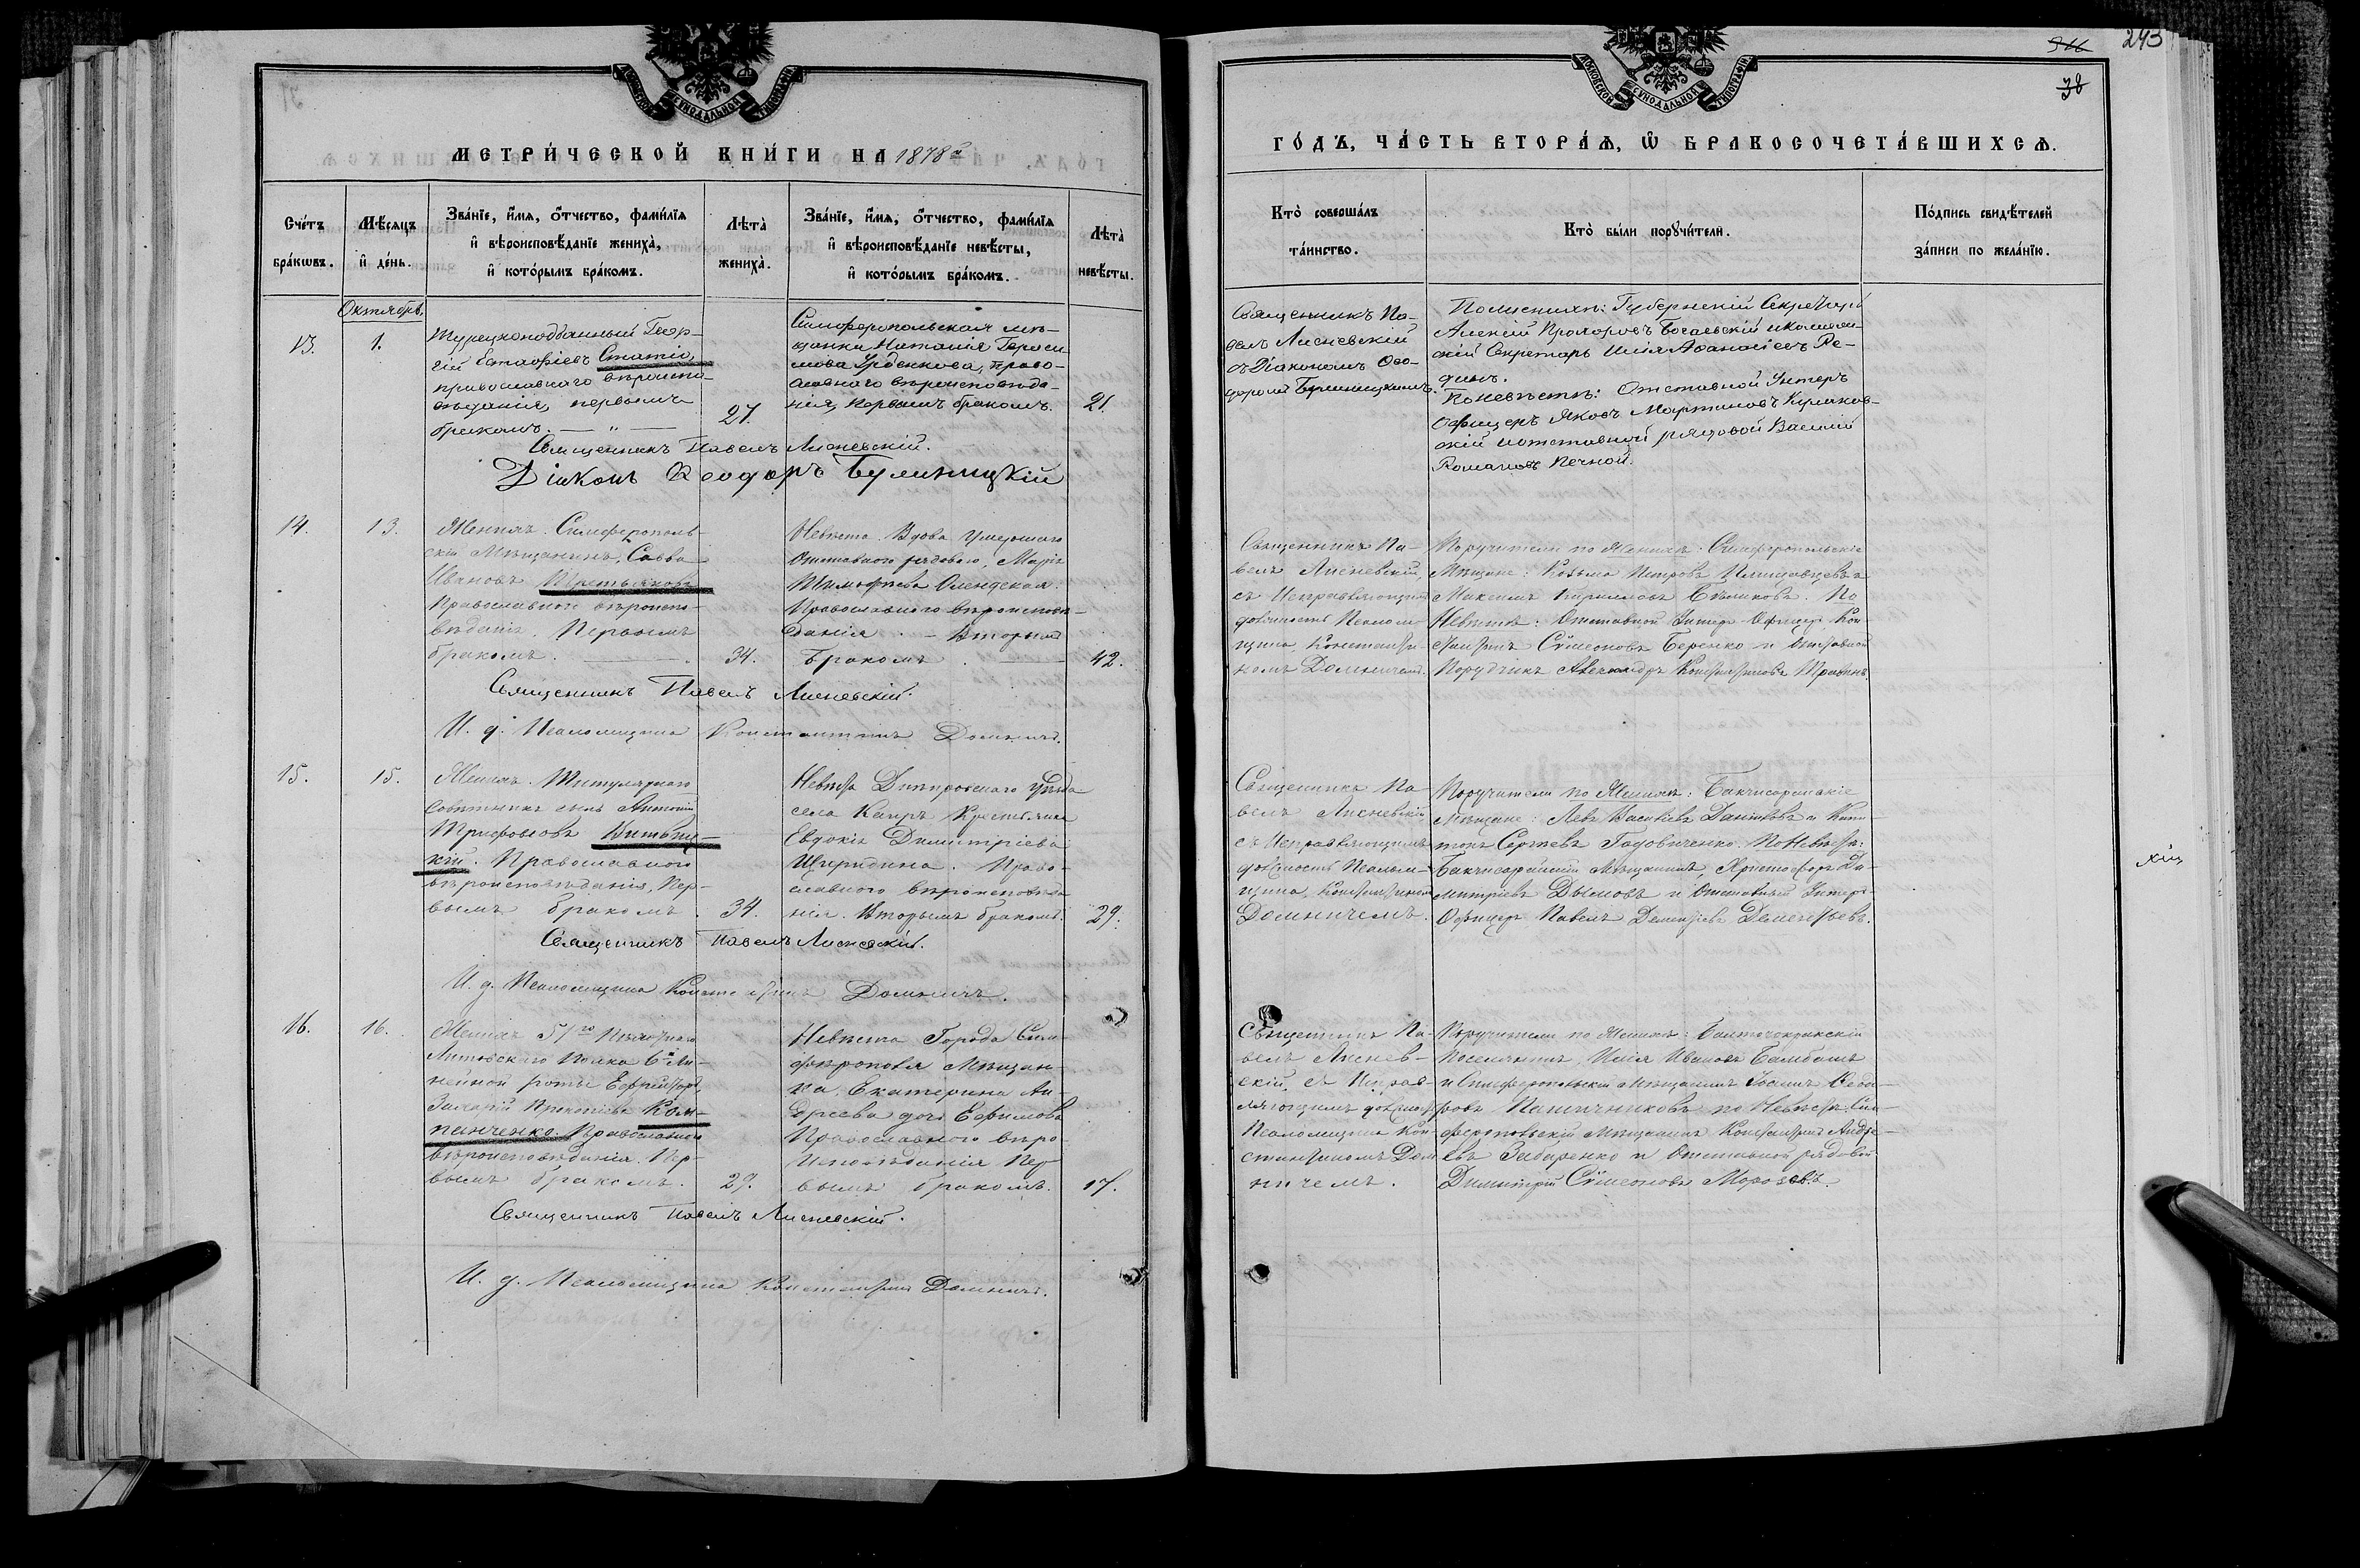 МОСКОВСКОЙ СѴНОДАЛЬНОЙ ТИПОГРАФІИ
МЕТРИ́ЧЕСКОЙ КНИ́ГИ НА 1878й
Сче́тъ бра́кѡвъ.
Мѣ́сяцъ и҆ де́нь.
Зва́нїе, и҆́мя, ѻ҆́тчество, фами́лїя
и҆ вѣроисповѣ́данїе жениха̀,
и҆ кото́рымъ бра́комъ.
Лѣта̀ жениха̀.
Зва́нїе, и҆́мя, ѻ҆́тчество, фами́лїя
и҆ вѣроисповѣ́данїе невѣ́сты,
и҆ кото́рымъ бра́комъ.
Лѣта̀ невѣ́сты.
Октябрь.
13.
1.
Турецкоподданный Геор-
гій Евстафіевъ Стати,
православнаго вѣроиспо-
вѣданія, первымъ
бракомъ. — „ —
27.
Симферопольская мѣ-
щанка Наталія Гераси-
мова, право-
славнаго вѣроисповѣда-
нія, первымъ бракомъ.
21.
Священникъ Павелъ Лисневскій.
Діаконъ Ѳеодоръ Булиницкій
14.
13.
Женихъ. Симферополь-
скій Мѣщанинъ, Савва
Ивановъ Третьяковъ
Православнаго вѣроиспо-
вѣданія. Первымъ
бракомъ.
34.
Невѣста. Вдова умершаго
Отставнаго рядоваго, Марія
Тимофеева Олендская.
Православнаго вѣроисповѣ-
данія. – Вторымъ
бракомъ.
42.
Священникъ Павелъ Лисневскій.
И. д. Псаломщика Константинъ Домничъ.
15.
15.
Женихъ. Титулярнаго
Совѣтника сынъ Антоній
Трифоновъ Витвиц-
кій. Православнаго
вѣроисповѣданія, Пер-
вымъ бракомъ.
34.
Невѣста Днѣпровскаго Уѣзда
села Каиръ Крестьянка
Евдокія Димитріева
Право-
славнаго вѣроисповѣда-
нія. Вторымъ бракомъ.
29.
Священникъ Павелъ Лисневскій.
И. д. Псаломщика Константинъ Домничъ.
16.
16.
Женихъ 51го Пѣхотнаго
Литовскаго Полка 6й Ли-
нейной роты Ефрейторъ,
Захарій Прокопіевъ Ком-
панченко. Православнаго
вѣроисповѣданія. Пер-
вымъ бракомъ.
29.
Невѣста Города Сим-
ферополя Мѣщан-
ка, Екатерина Ан-
дреева дочь Ефимова
Православнаго вѣро-
исповѣданія Пер-
вымъ бракомъ.
17.
Священникъ Павелъ Лисневскій.
И. д. Псаломщика Константинъ Домничъ.
МОСКОВСКОЙ СѴНОДАЛЬНОЙ ТИПОГРАФІИ
243
38
ГО́ДЪ, ЧА́СТЬ ВТОРА́Ѧ, Ѡ҆ БРАКОСОЧЕТА́ВШИХСѦ.
Кто̀ соверша́лъ та́инство.
Кто̀ бы́ли порꙋчи́тели.
По́дпись свидѣ́телей за́писи по жела́нїю.
Священникъ Па-
велъ Лисневскій
съ Діакономъ Ѳео-
доромъ Булиницкимъ.
По женихѣ: Губернскій Секретарь
Алексій Прохоровъ Богаевскій и Коллеж-
скій Секретарь Илія Аѳанасіевъ Ре-
динъ.
По невѣстѣ: Отставной Унтеръ
Офицеръ Яковъ Мартиновъ
скій и отставный рядовой Василій
Романовъ Печной.
Священникъ Па-
велъ Лисневскій,
съ Исправляющимъ
должность Псалом-
щика, Константи-
номъ Домничемъ.
Поручители по Женихѣ: Симферопольскіе
Мѣщане: Козьма Петровъ
Максимъ Кирилловъ Бѣликовъ. По
Невѣстѣ: Отставной Унтеръ-Офицеръ Кон-
стантинъ Сѵмеоновъ Беренко и Отставной
Порудчикъ Александръ Константиновъ
Священникъ Па-
велъ Лисневскій
съ Исправляющимъ
должность Псалом-
щика, Константиномъ
Домничемъ.
Поручители по Женихѣ: Бахчисарайскіе
Мѣщане: Левъ Васильевъ Даниловъ и Капи-
тонъ Сергѣевъ Годовиченко. По Невѣстѣ:
Бахчисарайскій Мѣщанинъ, Христофоръ Ди-
митріевъ Дымовъ и Отставной Унтеръ-
Офицеръ Павелъ Дементіевъ Дементьевъ.
Священникъ Па-
велъ Лиснев-
скій, съ Исправ-
ляющимъ должность
Псаломщика Кон-
стантиномъ Дом-
ничемъ.
Поручители по Женихѣ:
Поселянинъ, Илія Ивановъ
и Симферопольскій Мѣщанинъ Іоаннъ Ѳедо-
ровъ Пасичниковъ по Невѣстѣ: Сим-
феропольскій Мѣщанинъ Константинъ Андре-
евъ Забаренко и Отставной рядовой
Димитрій Сѵмеоновъ Морозовъ.